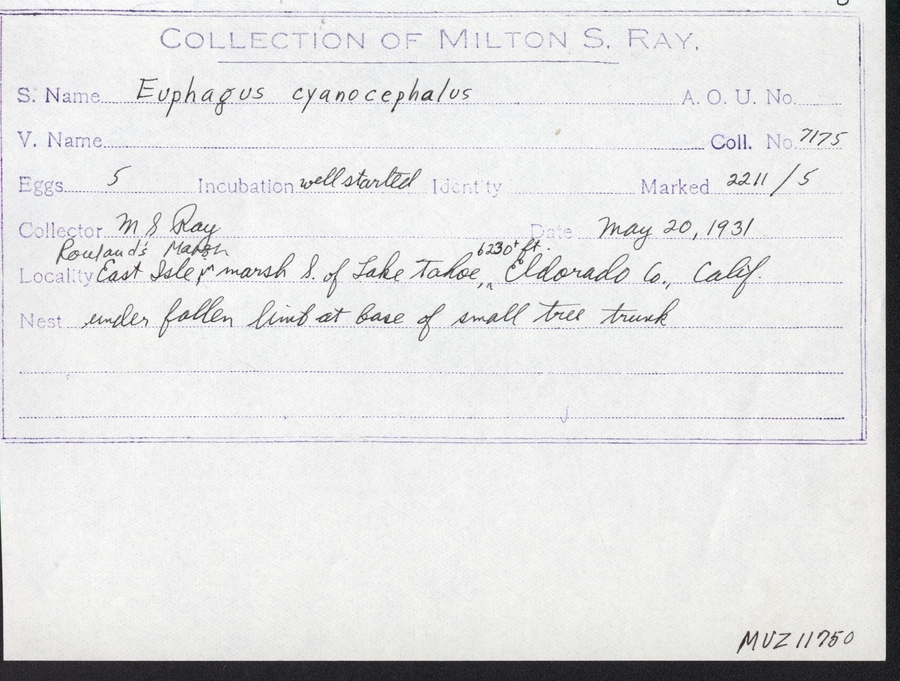 COLLECTION OF MILTON S. RAY.
S. Name Euphagus cyanocephalus A. O. U. No.
V. Name Coll. No. 7175
Eggs 5 Incubation well started Identity Marked 2211/5
Collector M S Ray Date May 20, 1931
Rowland's Marsh 6230± ft.
Locality East Isle, marsh S. of Lake Tahoe, Eldorado Co., Calif.
Nest under fallen limb at base of small tree trunk
MVZ 11750